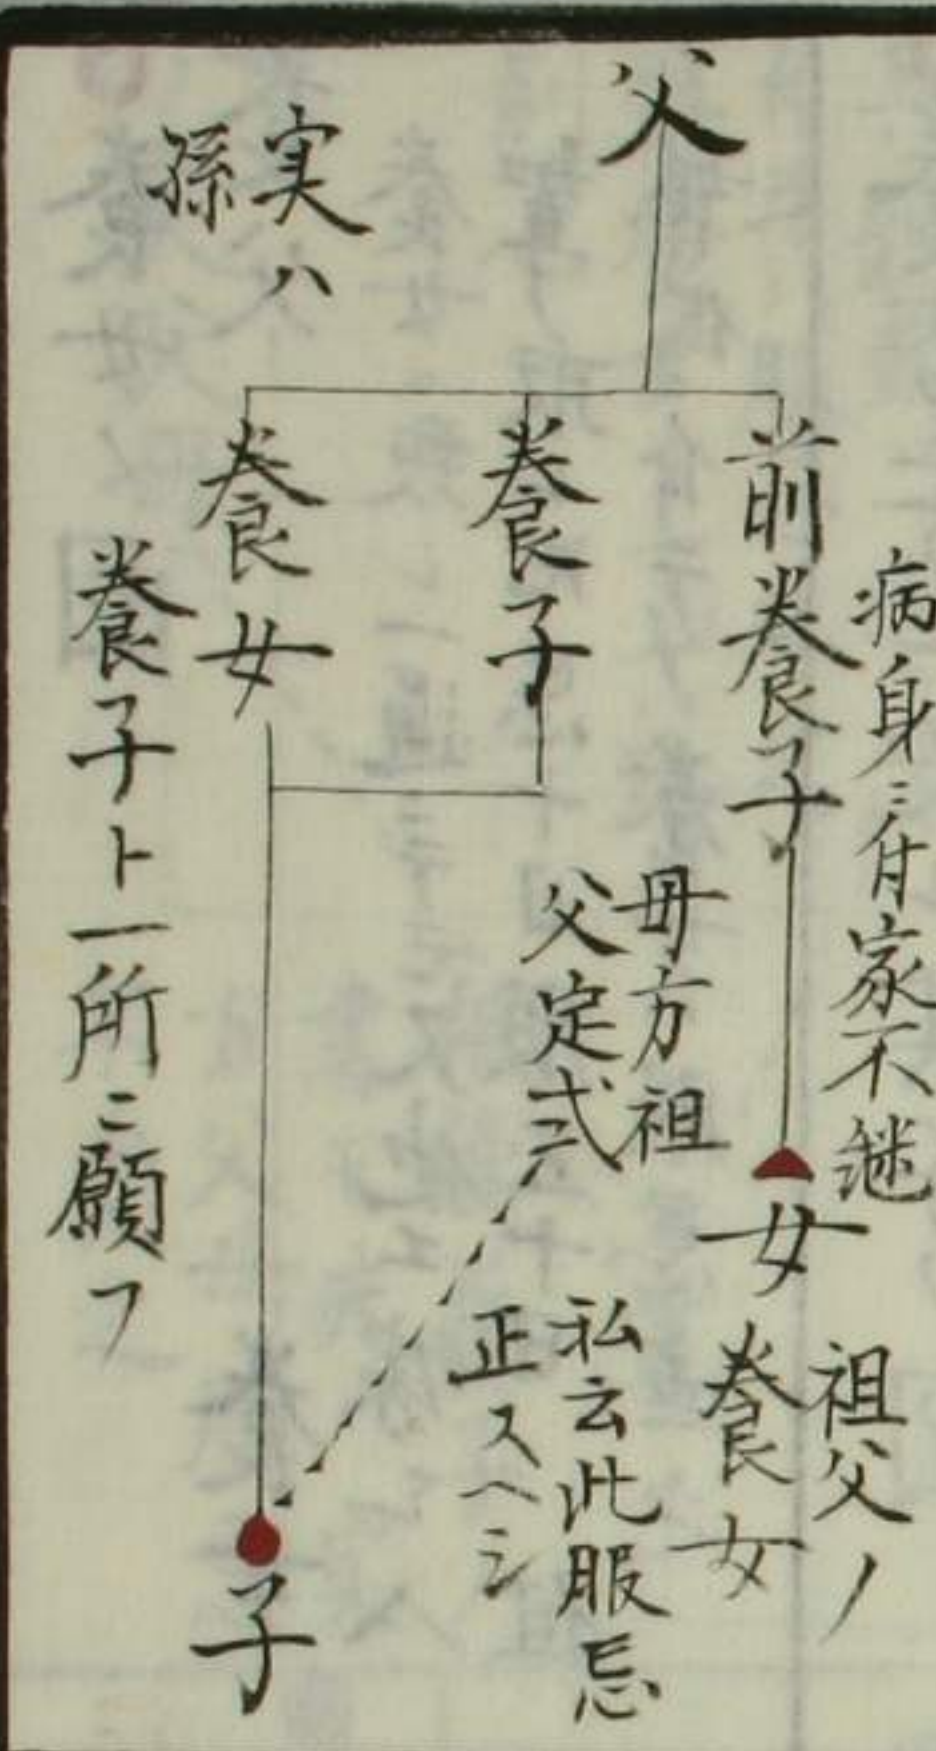 父
病身ニ付家不継
前養子
女
祖父ノ
養女
養子
母方祖
父定式
私云此服忌
正スヘシ
実ハ
孫
養女
養子ト一所ニ願フ
子